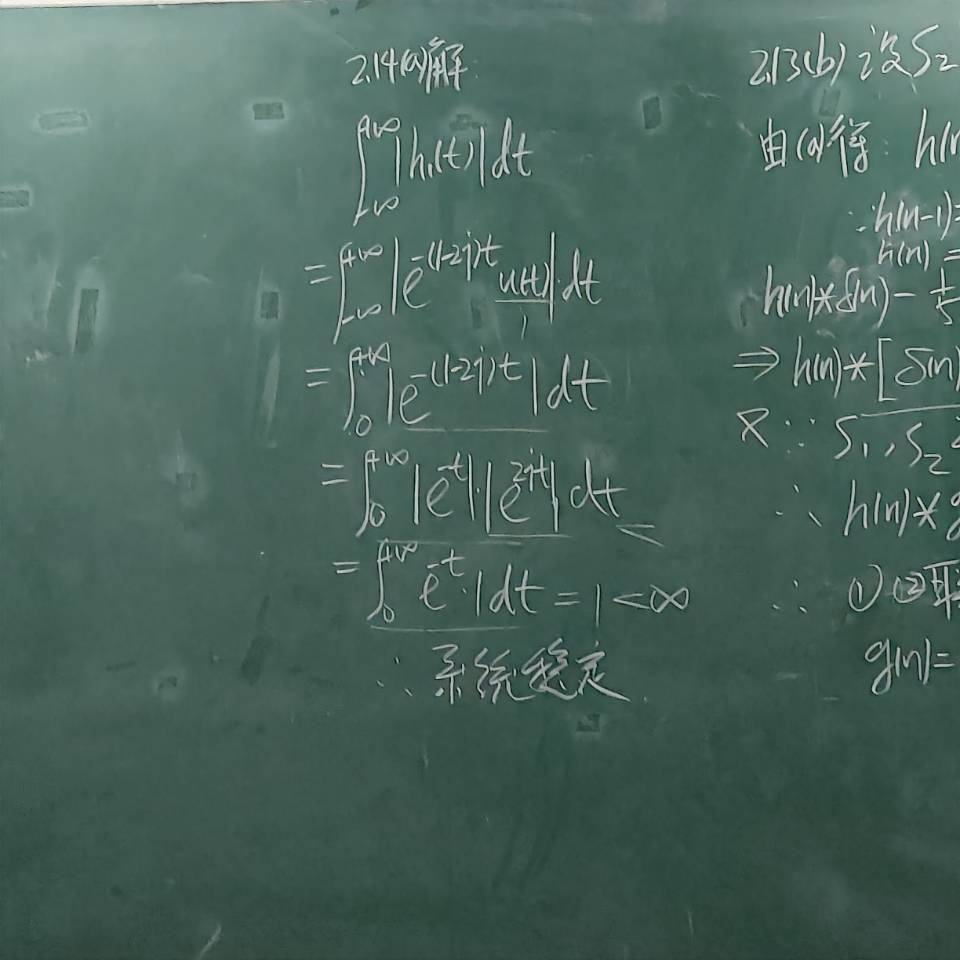 2.14(a)解:
∫_{-∞}^{+∞} |h₁(t)| dt
= ∫_{-∞}^{+∞} |e^{-(1-2j)t} u(t)| dt
= ∫_{0}^{+∞} |e^{-(1-2j)t}| dt
= ∫_{0}^{+∞} |e^{-t}|·|e^{2jt}| dt
= ∫_{0}^{+∞} e^{-t}·1 dt = 1 < ∞
∴ 系统稳定
2.13(b) 设S₂
由(a)得: h(n
∴ h(n-1)=
h(n) =
h(n)*δ(n) - 1/5
⇒ h(n)*[δ(n)
又∵ S₁, S₂
∴ h(n)*g
∴ ①②联
g(n)=